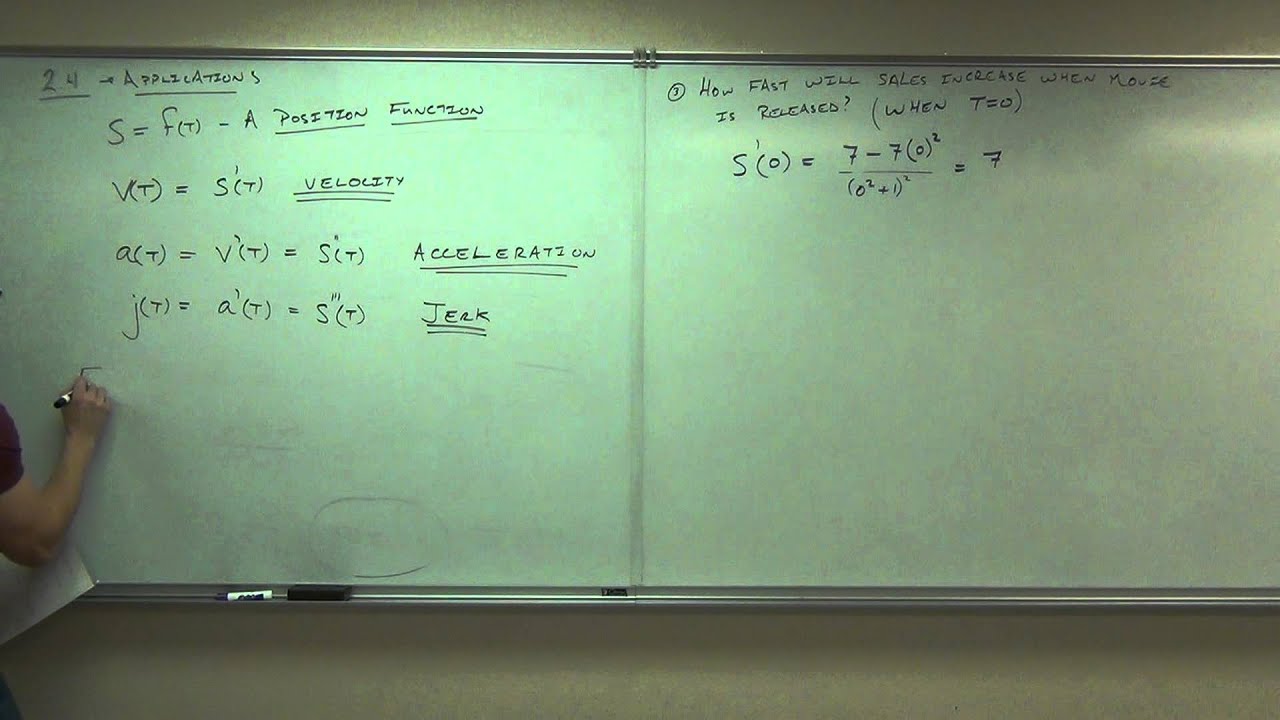 2.4 → APPLICATIONS
S = f(T) - A POSITION FUNCTION
V(T) = S'(T) VELOCITY
a(T) = V'(T) = S''(T) ACCELERATION
j(T) = a'(T) = S'''(T) JERK
③ HOW FAST WILL SALES INCREASE WHEN MOVIE
IS RELEASED? (WHEN T=0)
S'(0) = 7 - 7(0)² / (0² + 1)² = 7